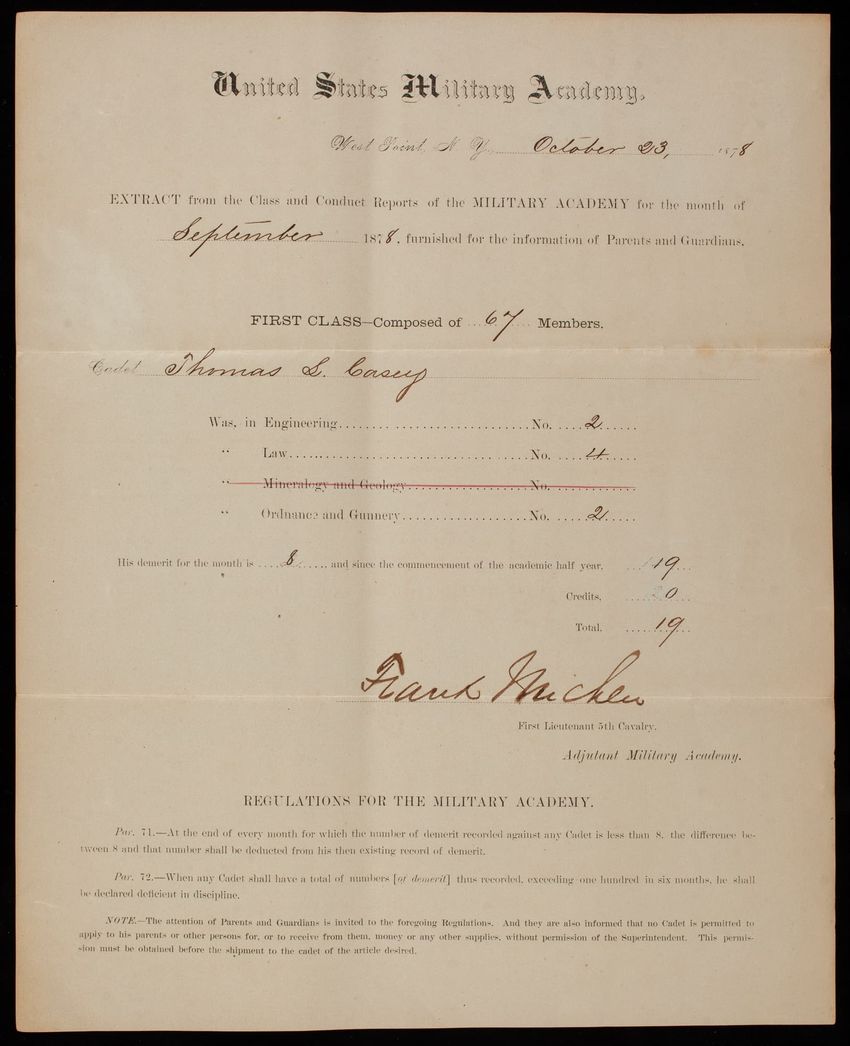 United States Military Academy.
West Point, N. Y., October 23, 1878
EXTRACT from the Class and Conduct Reports of the MILITARY ACADEMY for the month of
September 1878, furnished for the information of Parents and Guardians.
FIRST CLASS—Composed of 67 Members.
Cadet Thomas L. Casey
Was, in Engineering No. 2
" Law No. 4
" Mineralogy and Geology No.
" Ordnance and Gunnery No. 2
His demerit for the month is 8 and since the commencement of the academic half year, 19
Credits, 0
Total, 19
Frank Michler
First Lieutenant 5th Cavalry,
Adjutant Military Academy.
REGULATIONS FOR THE MILITARY ACADEMY.
Par. 71.—At the end of every month for which the number of demerit recorded against any Cadet is less than 8, the difference be-
tween 8 and that number shall be deducted from his then existing record of demerit.
Par. 72.—When any Cadet shall have a total of numbers [of demerit] thus recorded, exceeding one hundred in six months, he shall
be declared deficient in discipline.
NOTE.—The attention of Parents and Guardians is invited to the foregoing Regulations. And they are also informed that no Cadet is permitted to
apply to his parents or other persons for, or to receive from them, money or any other supplies, without permission of the Superintendent. This permis-
sion must be obtained before the shipment to the cadet of the article desired.